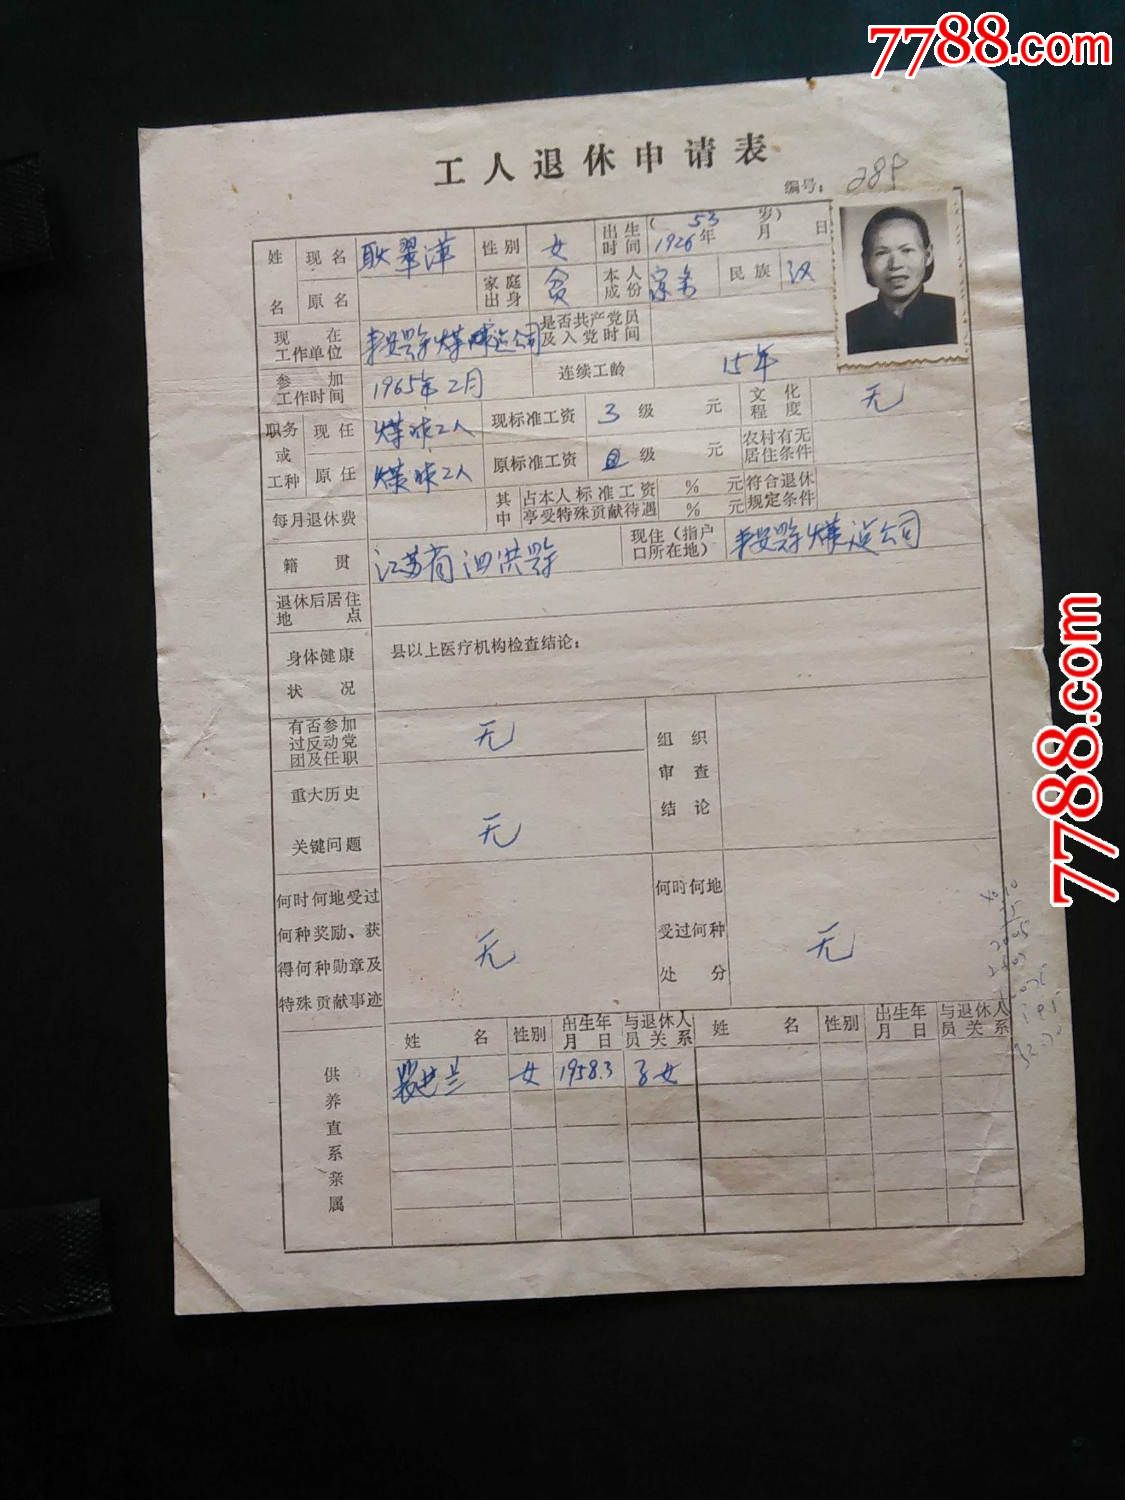 7788.com
工人退休申请表
编号：
姓名 现名 耿翠萍 性别 女 出生时间 (53岁) 1926年 月 日
原名 家庭出身 贫 本人成份 民族 汉
现在工作单位 是否共产党员及入党时间
参加工作时间 1965年2月 连续工龄 15年
职务或工种 现任 煤球工人 现标准工资 3级 元 文化程度 无
原任 煤球工人 原标准工资 级 元 农村有无居住条件
每月退休费 其中 占本人标准工资 % 元 符合退休规定条件
享受特殊贡献待遇 % 元
籍贯 江苏省泗洪县 现住（指户口所在地） 县煤运公司
退休后居住地点
身体健康状况 县以上医疗机构检查结论：
有否参加过反动党团及任职 无 组织审查结论
重大历史关键问题 无
何时何地受过何种奖励、获得何种勋章及特殊贡献事迹 无 何时何地受过何种处分 无
供养直系亲属 姓名 性别 出生年月日 与退休人员关系 姓名 性别 出生年月日 与退休人员关系
女 1958.3 子女
7788.com